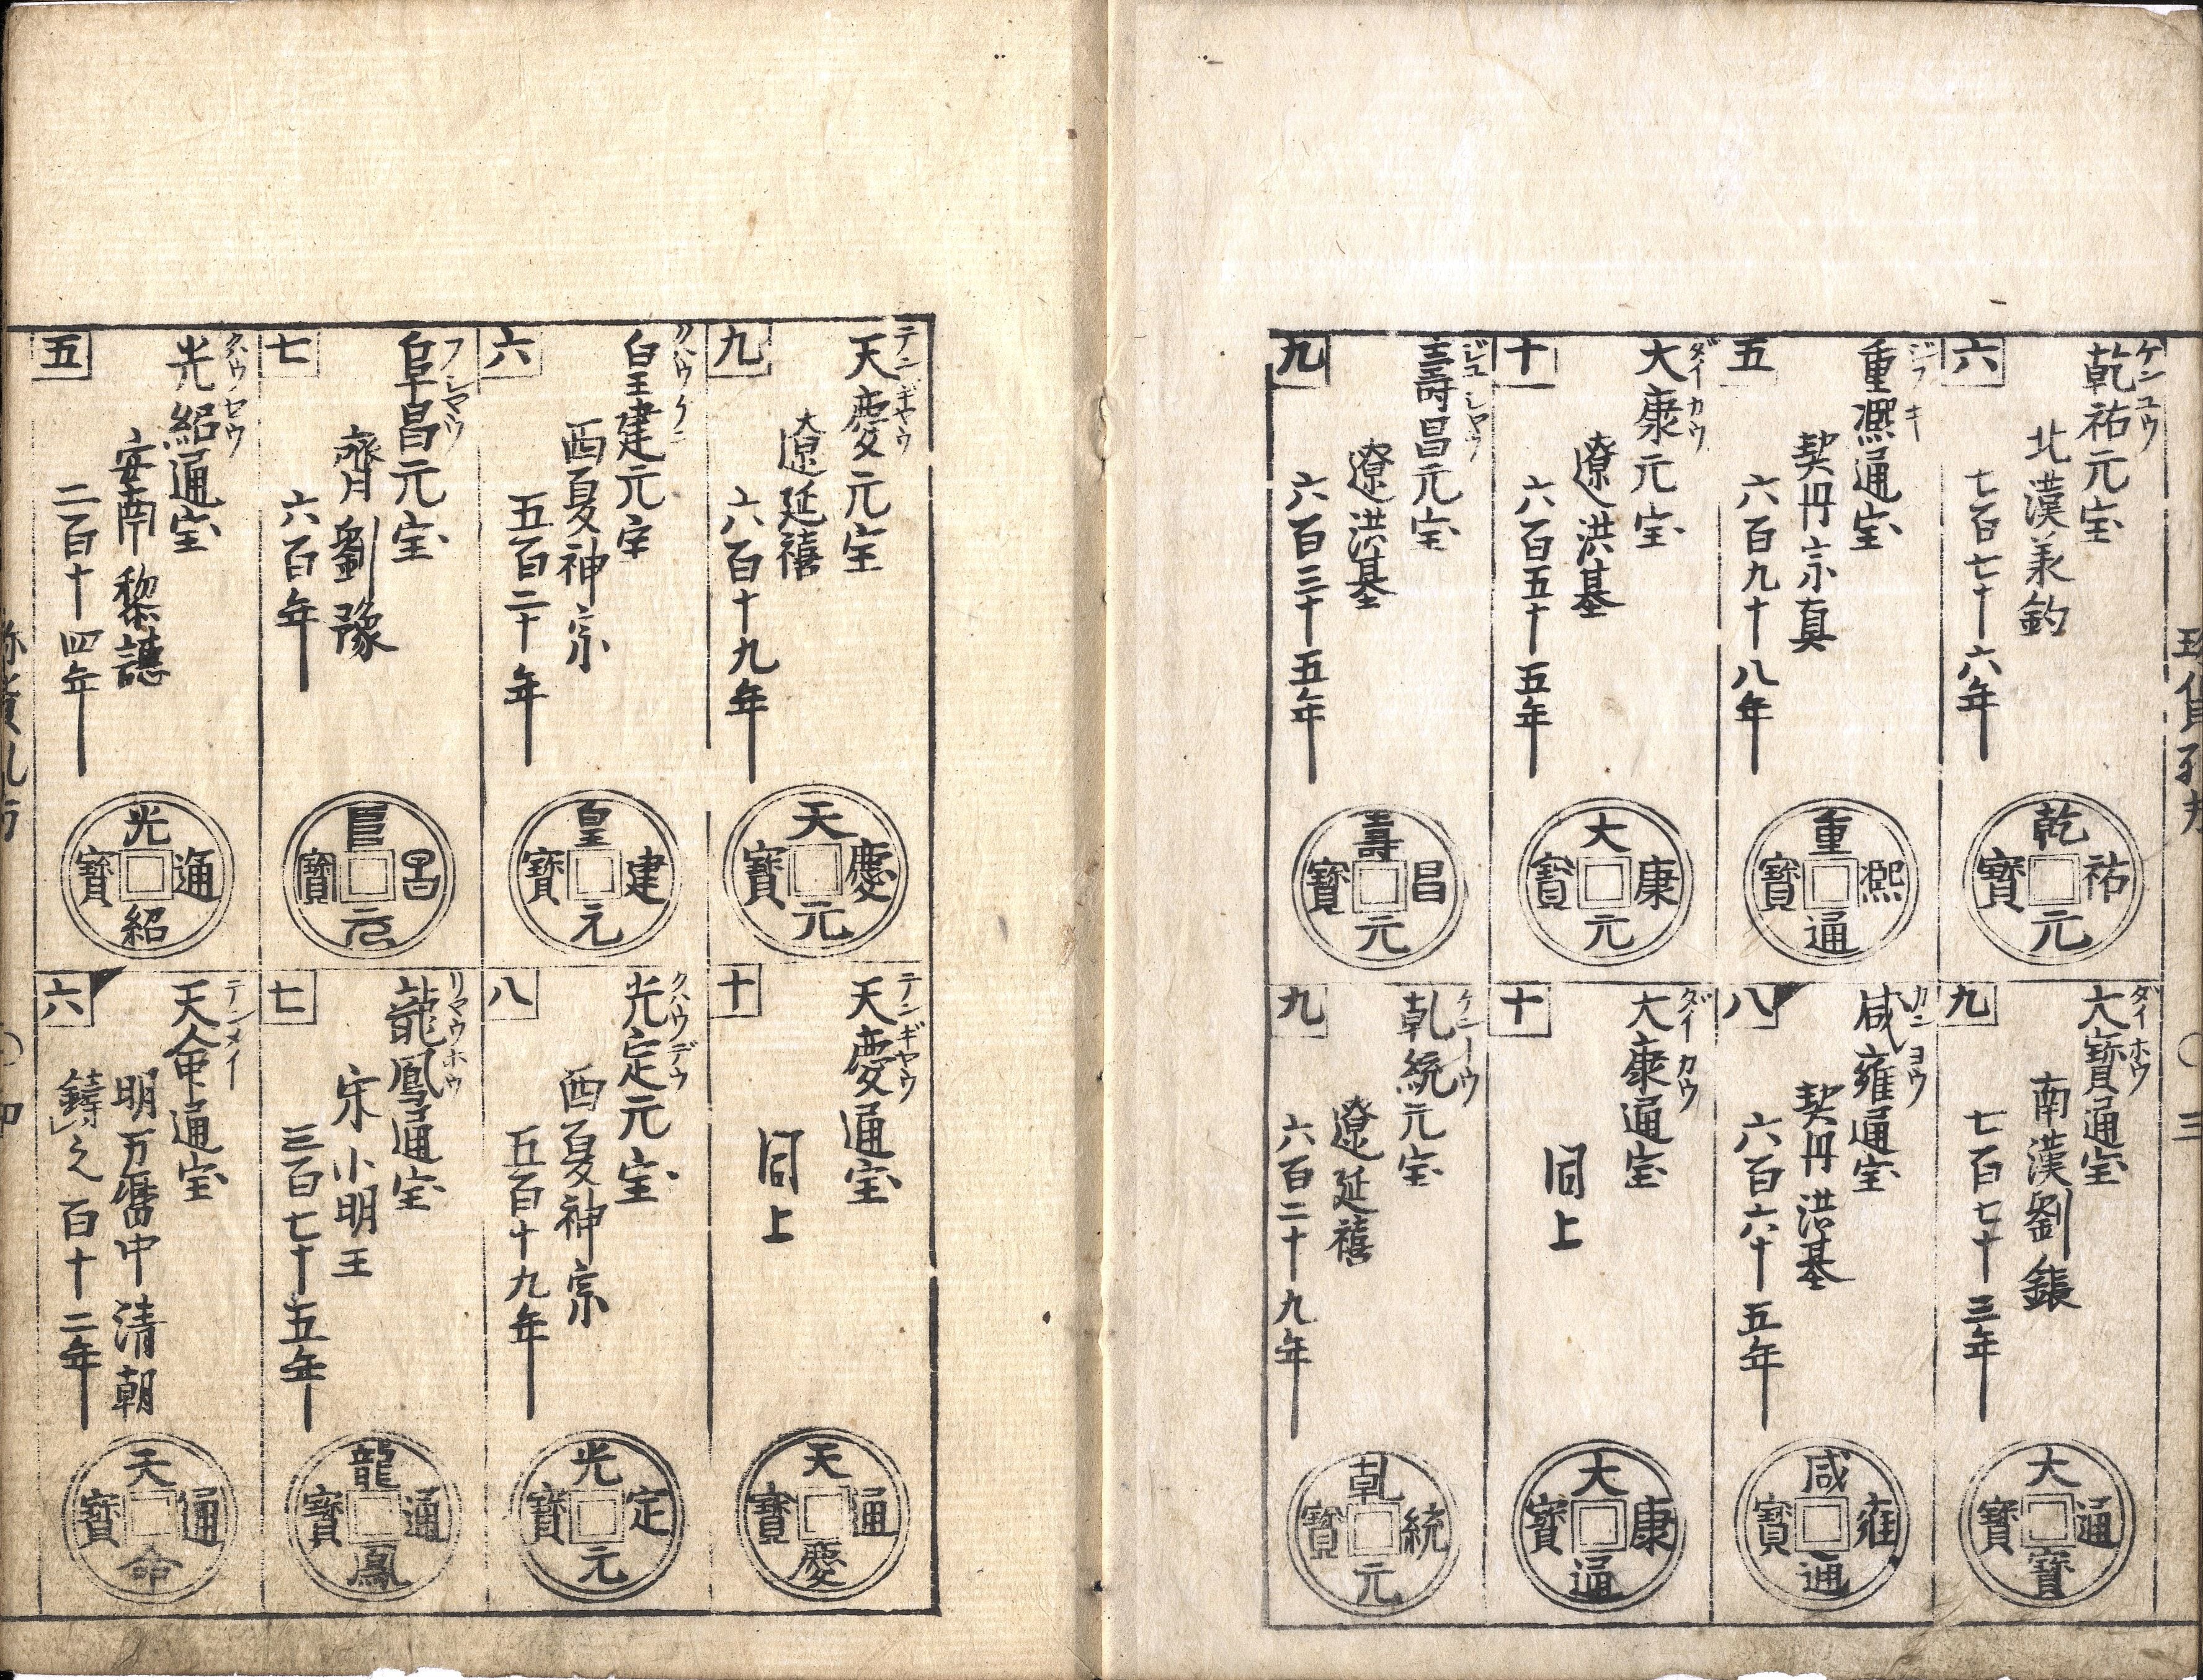 珎貨孔方
〇三
六
ケンユウ
乾祐元宝
北漢羕鈞
七百七十六年
乾祐元寳
九
ダイホウ
大寳通宝
南漢劉鋹
七百七十三年
大通寳寳
五
ジフキ
重凞通宝
契丹宗真
六百九十八年
重凞通寳
八
カンヨウ
咸雍通宝
契丹洪基
六百六十五年
咸雍通寳
十
ダイカウ
大康元宝
遼洪基
六百五十五年
大康元寳
十
ダイカウ
大康通宝
同上
大康通寳
九
ジュシヤウ
壽昌元宝
遼洪基
六百三十五年
壽昌元寳
九
ケントウ
乹統元宝
遼延禧
六百二十九年
乹統元寳
九
テンギヤウ
天慶元宝
遼延禧
六百十九年
天慶元寳
十
テンギヤウ
天慶通宝
同上
天通慶寳
六
クハウケン
皇建元宝
西夏神宗
五百二十年
皇建元寳
八
クハウデウ
光定元宝
西夏神宗
五百十九年
光定元寳
七
フシヤウ
阜昌元宝
齊劉豫
六百年
阜昌元寳
七
リヤウホウ
龍鳳通宝
宋小明王
三百七十五年
龍通鳳寳
五
クハウセウ
光紹通宝
安南黎譓
二百十四年
光通紹寳
六
テンメイ
天命通宝
明万暦中清朝
鑄之百十二年
天通命寳